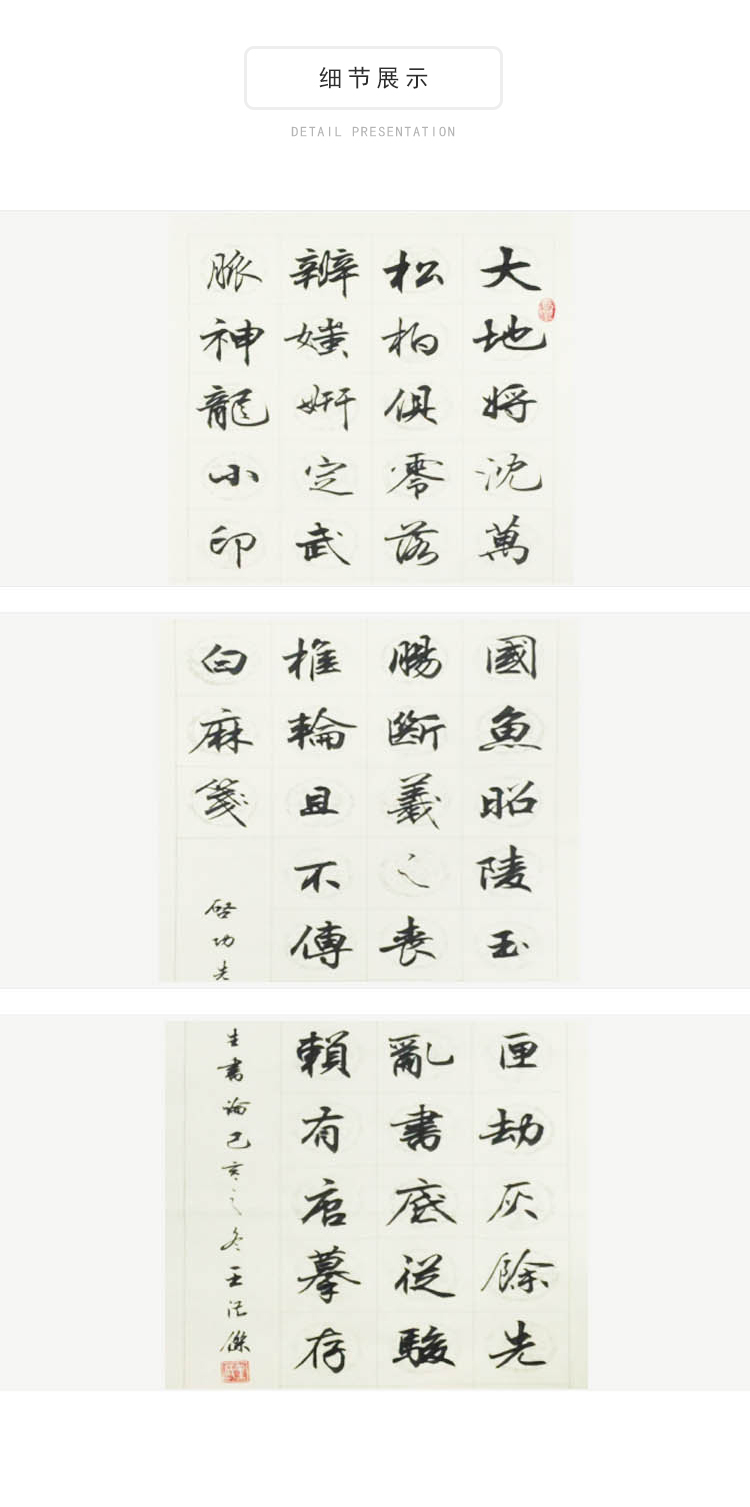 细节展示
DETAIL PRESENTATION
大地將沈萬
松柏俱零落
辨媸妍定武
脈神龍小印
國魚昭陵玉
腸斷羲之喪
椎輪且不傳
白麻箋
啓功先
匣劫灰餘先
亂書底從駿
賴有唐摹存
生書論己亥之冬王傑